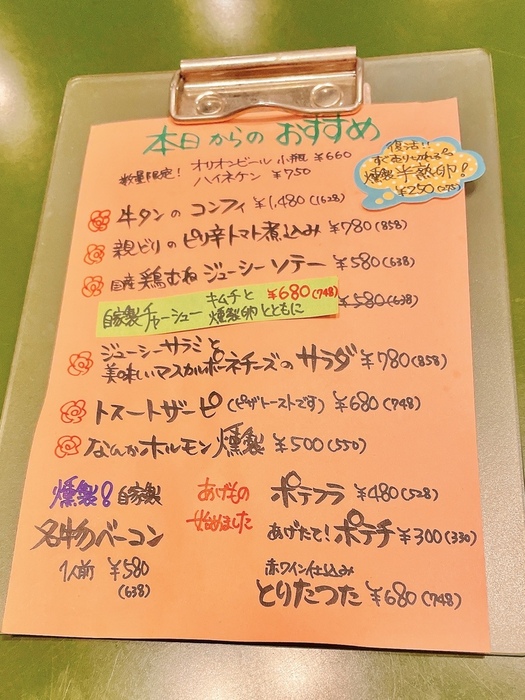 本日からのおすすめ
数量限定! オリオンビール 小瓶 ¥660
ハイネケン ¥750
復活!!
すぐ売り切れる
燻製 半熟卵!
¥250(275)
牛タンの コンフィ ¥1,480(1628)
親どりの ピリ辛トマト煮込み ¥780(858)
国産 鶏むね ジューシー ソテー ¥580(638)
自家製チャーシュー キムチと 燻製卵とともに ¥680(748)
¥580(638)
ジューシーサラミと
美味しいマスカルポーネチーズの サラダ ¥780(858)
トストザーピ (ピザトーストです) ¥680(748)
なんかホルモン燻製 ¥500(550)
燻製! 自家製
名物ベーコン
1人前 ¥580
(638)
あげもの
始めました
ポテフラ ¥480(528)
あげたて! ポテチ ¥300(330)
赤ワイン仕込み
とりたつた ¥680(748)